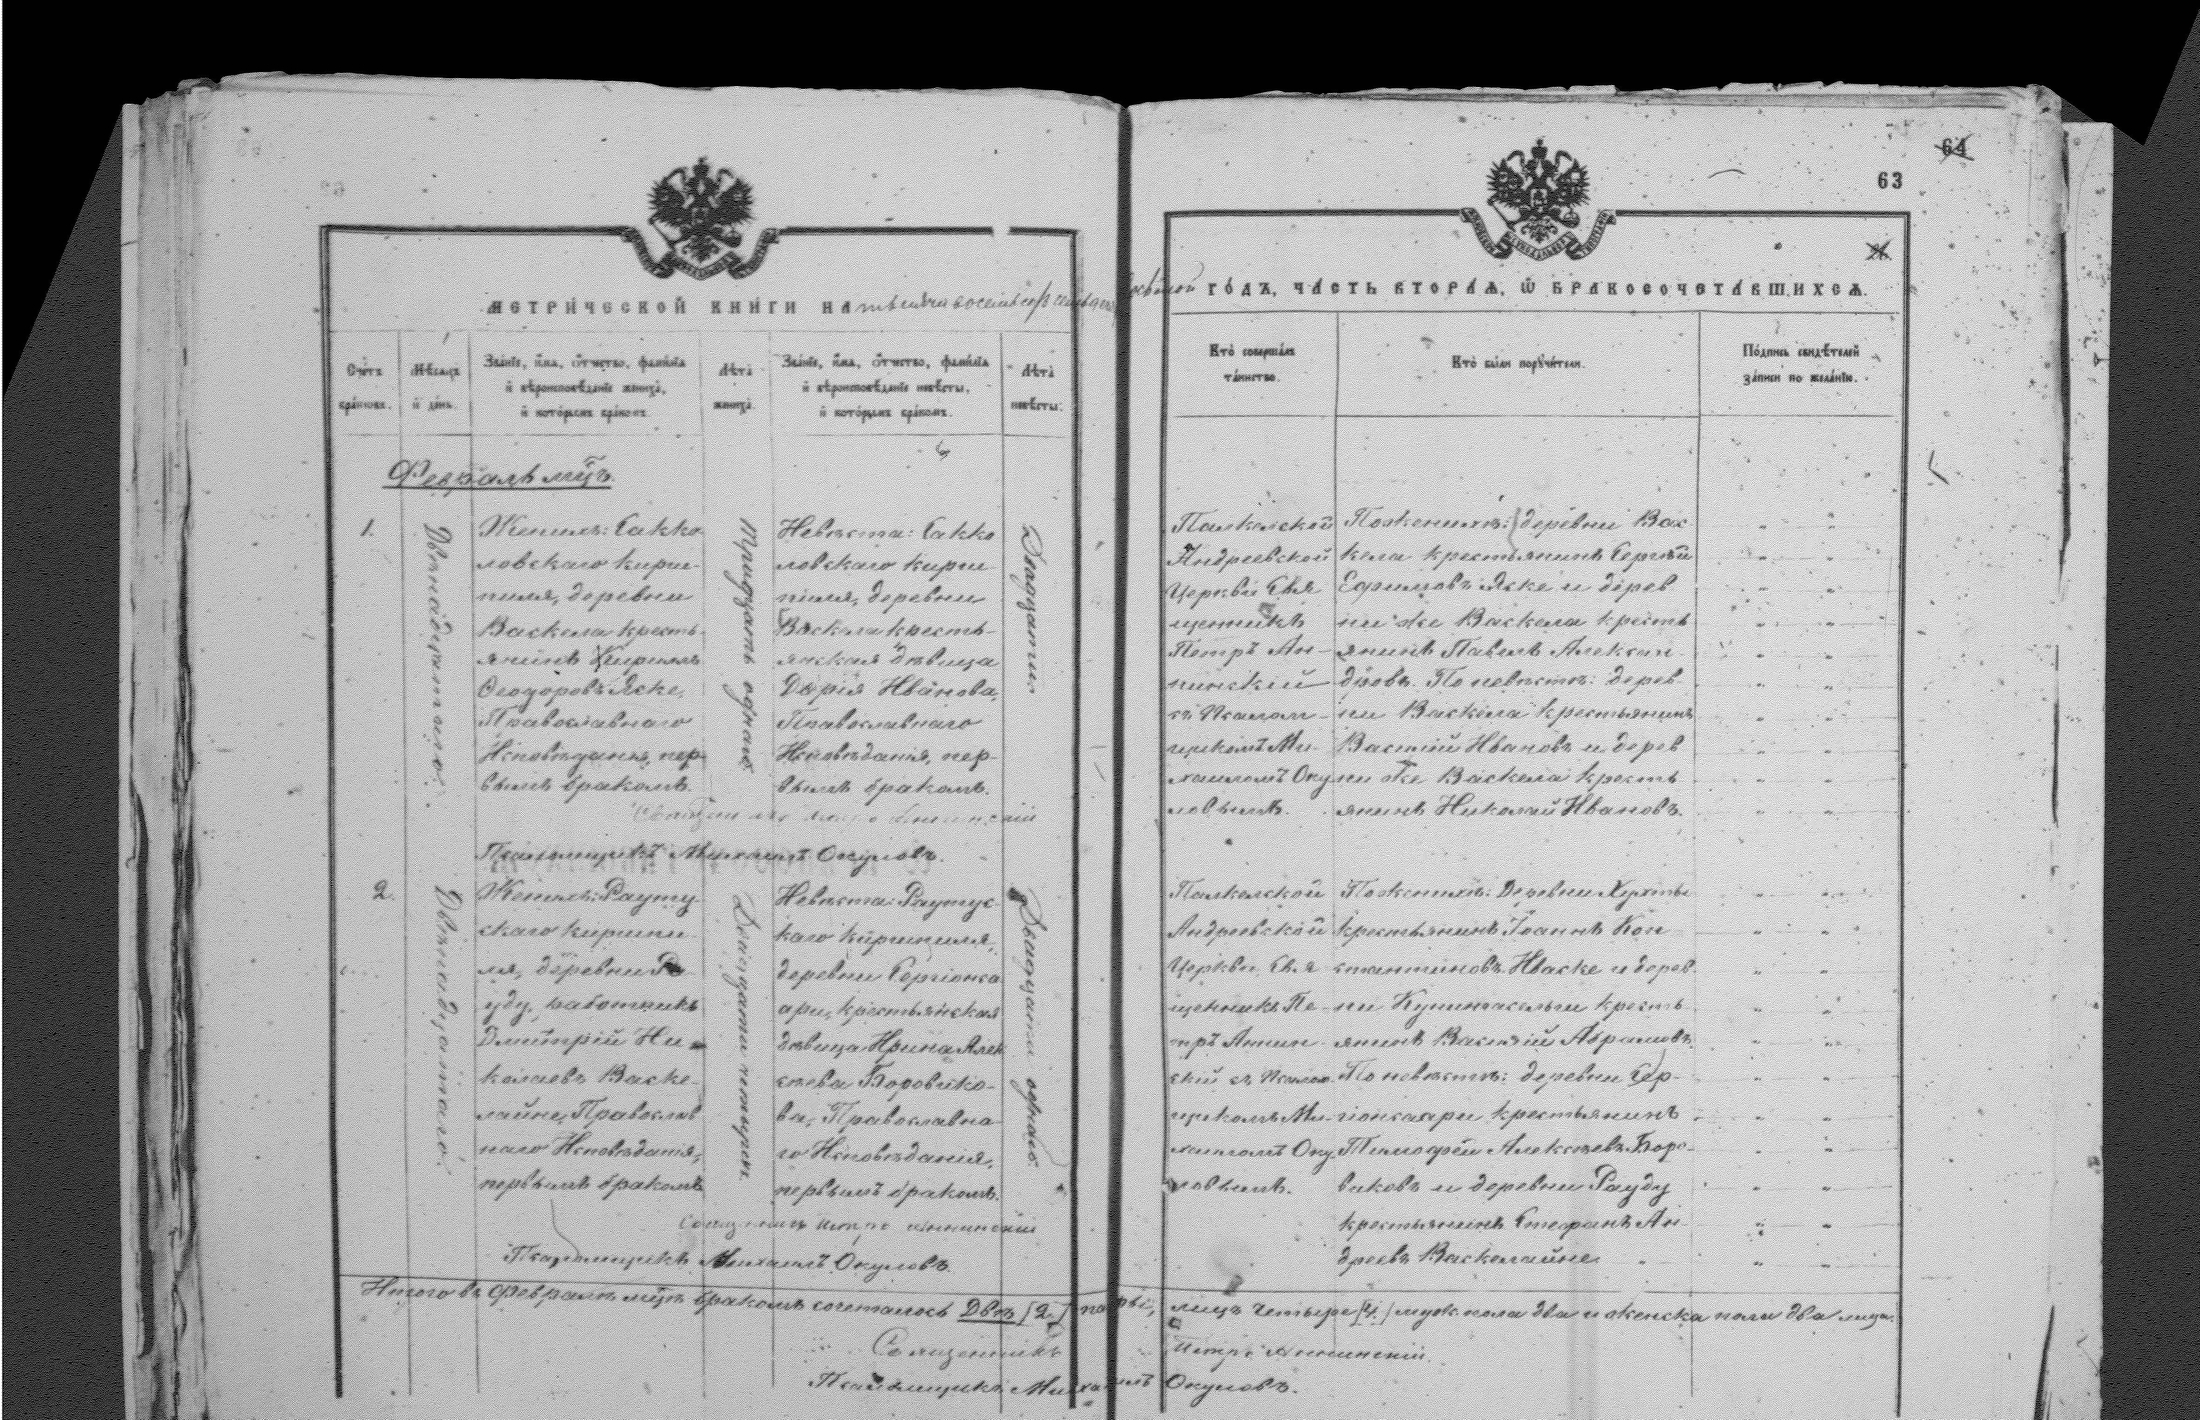 64
63
МЕТРИЧЕСКОЙ КНИГИ НА тысяча восемьсотъ
ГОДЪ, ЧАСТЬ ВТОРАЯ, Ѡ БРАКОСОЧЕТАВШИХСЯ.
Счетъ браковъ.
Мѣсяцъ и день.
Званіе, имя, отчество, фамилія и вѣроисповѣданіе жениха, и которымъ бракомъ.
Лѣта жениха.
Званіе, имя, отчество, фамилія и вѣроисповѣданіе невѣсты, и которымъ бракомъ.
Лѣта невѣсты.
Кто совершалъ таинство.
Кто были поручители.
Подпись свидѣтелей записи по желанію.
Февраль мц҃ъ.
1.
Двѣнадцатаго.
Женихъ: Сакко
ловскаго кирш-
пиля, деревни
Васкела кресть-
янинъ Кириллъ
Ѳеодоровъ Яске,
Православнаго
Исповѣданія, пер-
вымъ бракомъ.
Тридцать одного
Невѣста: Сакко
ловскаго кирш-
пиля, деревни
Васкела кресть-
янская дѣвица
Дарія Иванова,
Православнаго
Исповѣданія, пер-
вымъ бракомъ.
Двадцати
Палкельской
Андреевской
Церкви Свя
щенникъ
Петръ Ан-
нинскій
съ Псалом-
щикомъ Ми-
хаиломъ Оку
ловымъ.
По женихѣ: деревни Вас
кела крестьянинъ Сергѣй
Ефимовъ Яске и дерев
ни же Васкела кресть
янинъ Павелъ Алексан-
дровъ. По невѣстѣ: дерев
ни Васкела крестьянинъ
Василій Ивановъ и дерев
ни же Васкела кресть
янинъ Николай Ивановъ.
Священникъ Петръ Аннинскій
Псаломщикъ Михаилъ Окуловъ.
2.
Двѣнадцатаго.
Женихъ: Рауту
скаго киршпи
ля, деревни Ра
уду, работникъ
Дмитрій Ни-
колаевъ Васке-
лайне, Православ
наго Исповѣданія,
первымъ бракомъ
Двадцати
Невѣста: Раутус-
каго киршпиля,
деревни Сергіонса
ари, крестьянская
дѣвица Ирина Алек
сѣева Боровико-
ва, Православна
го Исповѣданія,
первымъ бракомъ.
Двадцати одного.
Палкельской
Андреевской
Церкви Свя
щенникъ Пе-
тръ Аннин-
скій съ Псалом-
щикомъ Ми-
хаиломъ Оку
ловымъ.
По женихѣ: Деревни
крестьянинъ Іоаннъ Кон
стантиновъ Иваске и дерев
ни кресть
янинъ Василій Абрамовъ.
По невѣстѣ: деревни Сер-
гіонсаари крестьянинъ
Тимофей Алексѣевъ Боро-
виковъ и деревни Рауду
крестьянинъ Стефанъ Ан-
дреевъ Васкелайне.
Священникъ Петръ Аннинскій
Псаломщикъ Михаилъ Окуловъ.
Итого въ Февралѣ мц҃ѣ бракомъ сочеталось Двѣ [2] пары, лицъ четыре [4.] муж. пола два и женска пола два лица.
Священникъ Петръ Аннинскій.
Псаломщикъ Михаилъ Окуловъ.